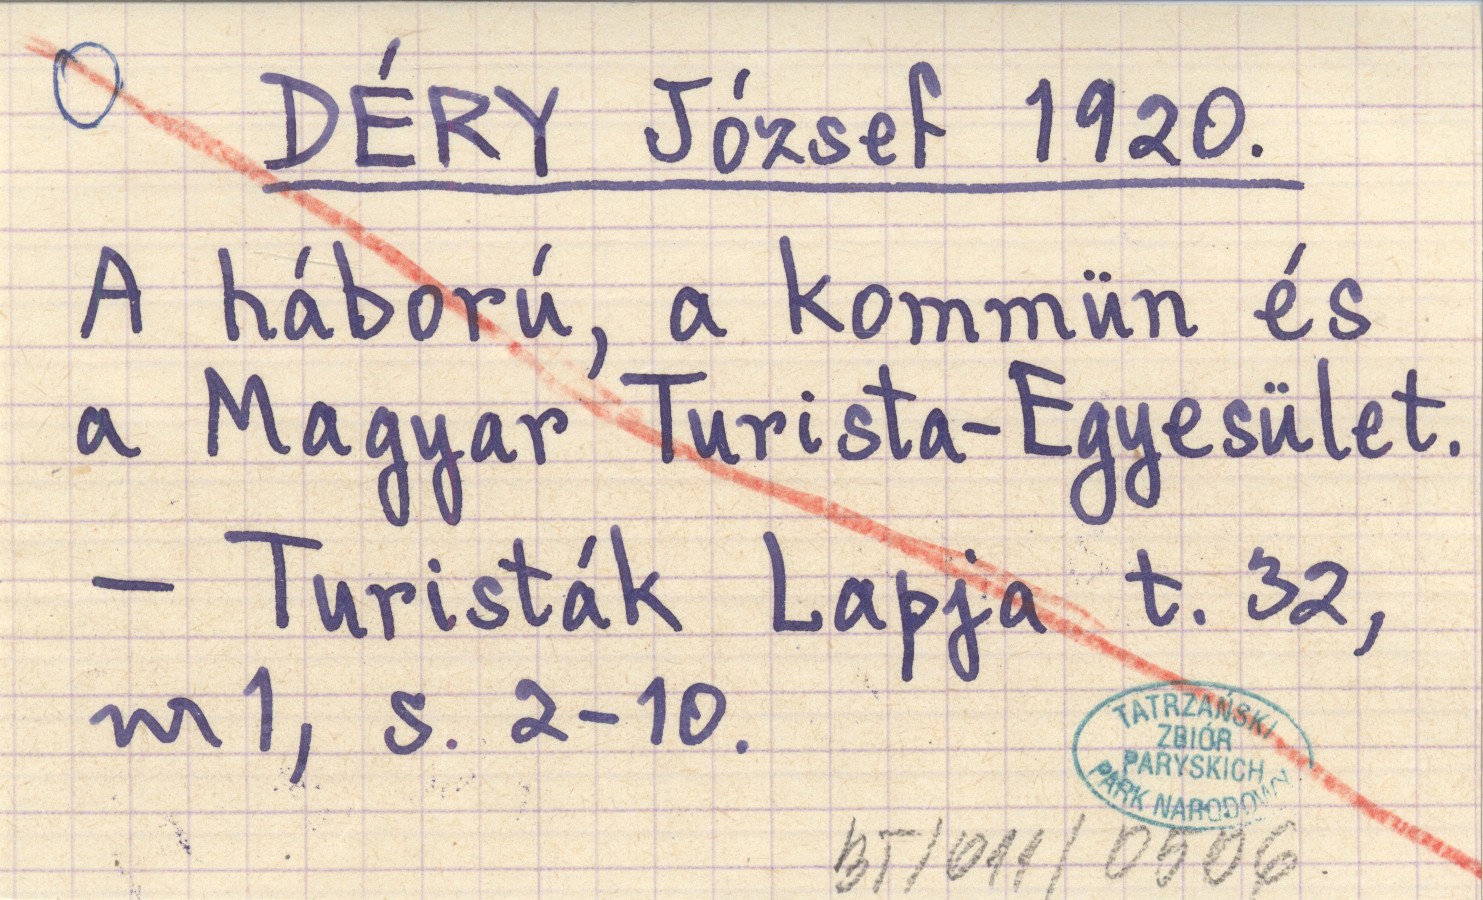 DÉRY József 1920.
A háború, a kommün és
a Magyar Turista-Egyesület.
– Turisták Lapja t. 32,
nr 1, s. 2–10.
TATRZAŃSKI
ZBIÓR
PARYSKICH
PARK NARODOWY
BT/011/0506